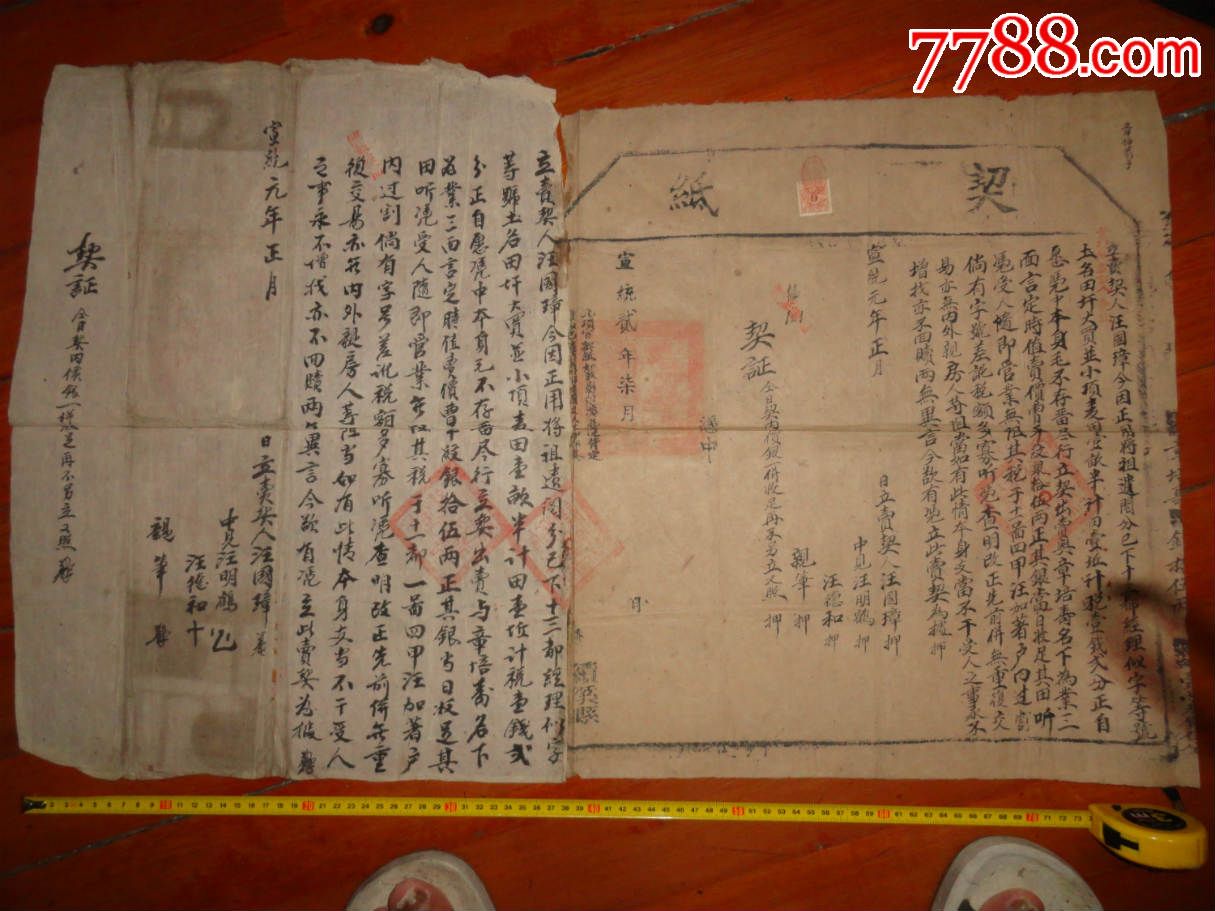 7788.com
契
紙
立賣契人汪國璋今因正用將祖遺鬮分己下十三都經理似字等號
土名田圩大買並小項麦田壹畝半計田壹坵計稅壹錢弍分正自
愿憑中本身毛不存畨尽行立契出賣與章培壽名下為業三
面言定時值賣價曹平紋銀拾伍兩正其銀當日收足其田听
憑受人隨即管業無阻其稅于十一啚四甲汪加著户内过割
倘有字號差訛稅額多寡听憑查明改正先前併無重復交
易亦無内外親房人等阻當如有此情本身支當不干受人之事永不
增找亦不回贖兩無異言今欲有憑立此賣契為據 押
宣統元年正月
日立賣契人汪國璋 押
中見汪明鶴 押
汪德和 押
親筆 押
契証 今日契内價銀一併收足再不另立又照 押
憑中
宣統貳年柒月 日
績溪縣
立賣契人汪國璋今因正用將祖遺鬮分己下十三都經理似字
等號土名田圩大買並小項麦田壹畝半計田壹坵計稅壹錢弍
分正自愿憑中本身毛不存畨尽行立契出賣与章培壽名下
為業三面言定時值賣價曹平紋銀拾伍兩正其銀当日收足其
田听憑受人隨即管業無阻其稅于十一都一啚四甲汪加著户
内过割倘有字号差訛稅額多寡听憑查明改正先前併無重
復交易亦無内外親房人等阻当如有此情本身支当不干受人
之事永不增找亦不回贖兩無異言今欲有憑立此賣契為據
宣統元年正月
日立賣契人汪國璋
中見汪明鶴
汪德和十
親筆
契証 今日契内價銀一併收足再不另立又照
3m